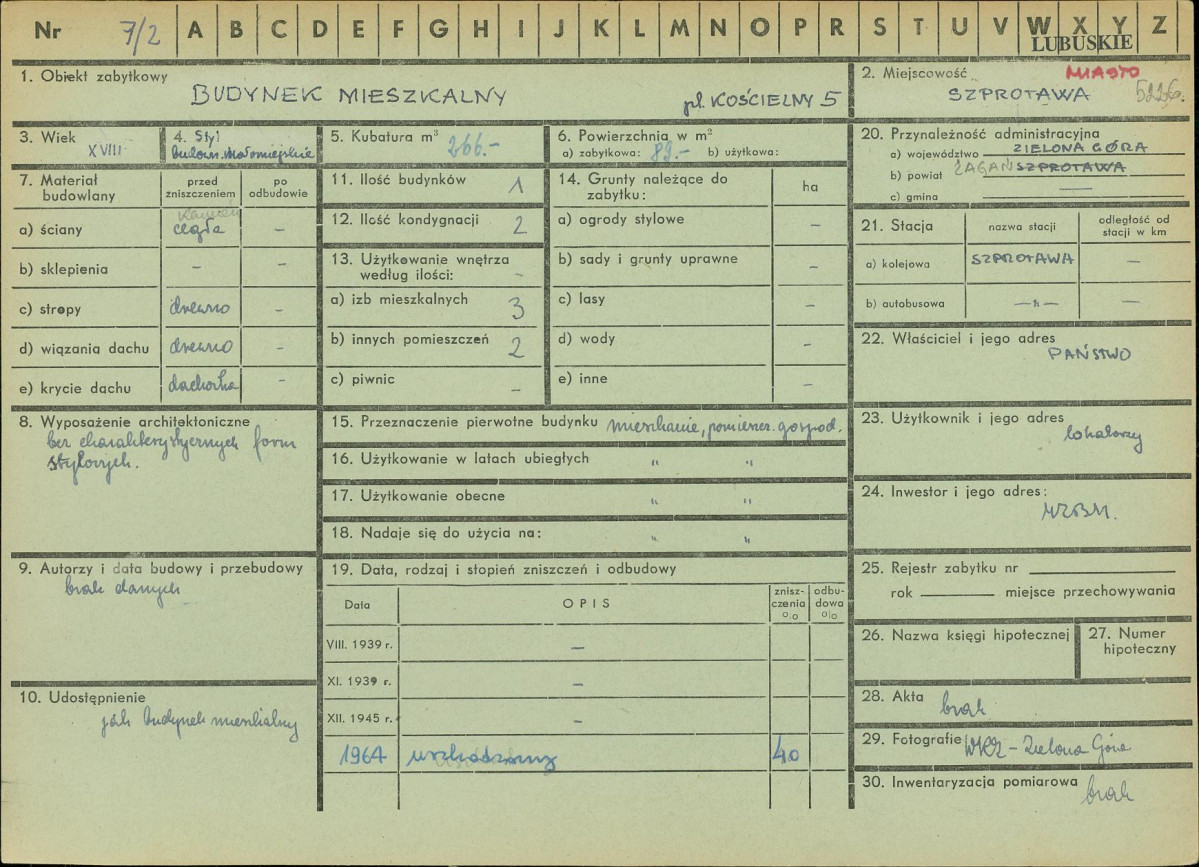 Nr 7/2 A B C D E F G H I J K L M N O P R S T U V W X Y Z
LUBUSKIE
1. Obiekt zabytkowy
BUDYNEK MIESZKALNY pl. KOŚCIELNY 5
2. Miejscowość MIASTO
SZPROTAWA 5226.
3. Wiek
XVIII
4. Styl
budown. małomiejskie
5. Kubatura m³ 266.-
6. Powierzchnia w m²
a) zabytkowa: 89.- b) użytkowa:
20. Przynależność administracyjna
a) województwo ZIELONA GÓRA
b) powiat ŻAGAŃ SZPROTAWA
c) gmina —
7. Materiał budowlany
przed zniszczeniem
po odbudowie
a) ściany kamień cegła –
b) sklepienia – –
c) stropy drewno –
d) wiązania dachu drewno –
e) krycie dachu dachówka –
11. Ilość budynków 1
12. Ilość kondygnacji 2
13. Użytkowanie wnętrza
według ilości: –
a) izb mieszkalnych 3
b) innych pomieszczeń 2
c) piwnic –
14. Grunty należące do
zabytku: ha
a) ogrody stylowe –
b) sady i grunty uprawne –
c) lasy –
d) wody –
e) inne –
21. Stacja
nazwa stacji
odległość od
stacji w km
a) kolejowa SZPROTAWA –
b) autobusowa —"— –
22. Właściciel i jego adres
PAŃSTWO
8. Wyposażenie architektoniczne
bez charakterystycznych form
stylowych.
15. Przeznaczenie pierwotne budynku mieszkanie, pomieszcz. gospod.
16. Użytkowanie w latach ubiegłych " "
17. Użytkowanie obecne " "
18. Nadaje się do użycia na: " "
23. Użytkownik i jego adres
lokatorzy
24. Inwestor i jego adres:
MZBM.
9. Autorzy i data budowy i przebudowy
brak danych
19. Data, rodzaj i stopień zniszczeń i odbudowy
Data
OPIS
znisz-
czenia
%
odbu-
dowa
%
VIII. 1939 r. –
XI. 1939 r. –
XII. 1945 r. –
1964 uszkodzony 40
25. Rejestr zabytku nr
rok miejsce przechowywania
26. Nazwa księgi hipotecznej
27. Numer
hipoteczny
10. Udostępnienie
jak budynek mieszkalny
28. Akta
brak
29. Fotografie WKZ – Zielona Góra
30. Inwentaryzacja pomiarowa
brak